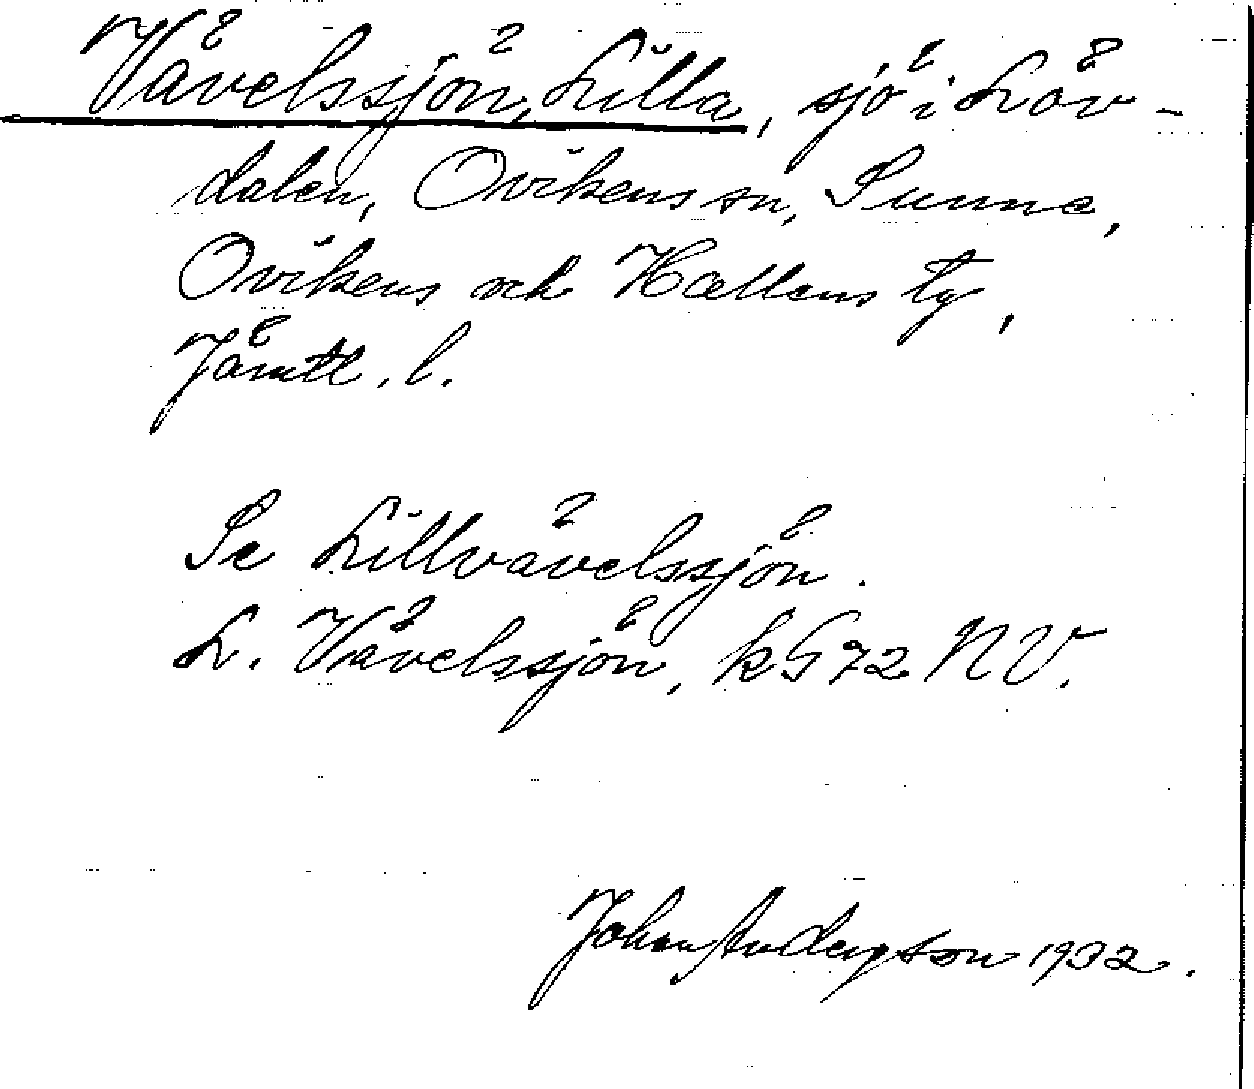 Vävelssjön, Lilla, sjö i Löv-
dalen, Ovikens sn, Sunne,
Ovikens och Hallens tg,
Jämtl. l.
Se Lillvävelssjön.
L. Vävelssjön, kG72 NV.
Johan Andersson 1932.